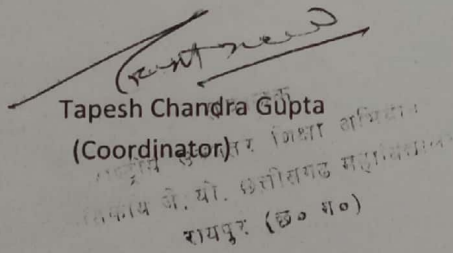 Tapesh Chandra Gupta
(Coordinator)
शिक्षा अभियान
जे. यो. छत्तीसगढ महाविद्यालय
रायपुर (छ० ग०)